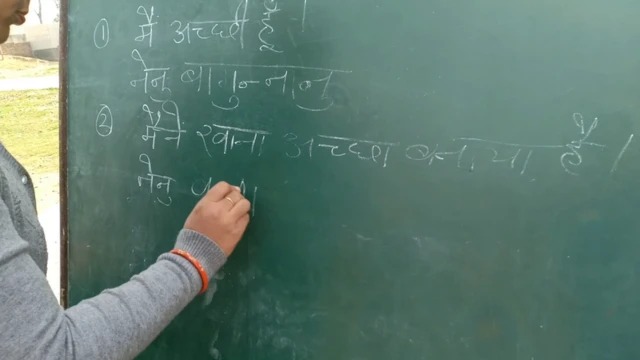 ① मैं अच्छी हूँ।
नेनु बागुन्नानु
② मैंने खाना अच्छा बनाया है।
नेनु